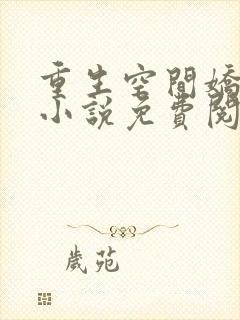 重生空間嬌
小說免費閱
歲苑